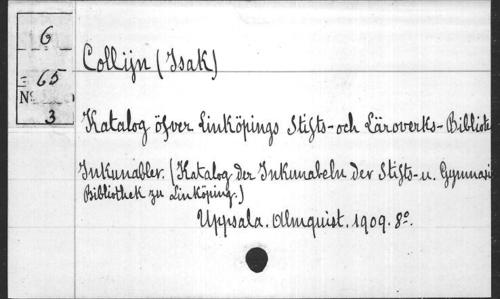 6
65
N°
3
Collijn (Isak)
Katalog öfver Linköpings Stifts- och Läroverks-Bibliote
Inkunabler. (Katalog der Inkunabeln der Stifts- u. Gymnasi
Bibliothek zu Linköping.)
Uppsala. Almquist. 1909. 8°.